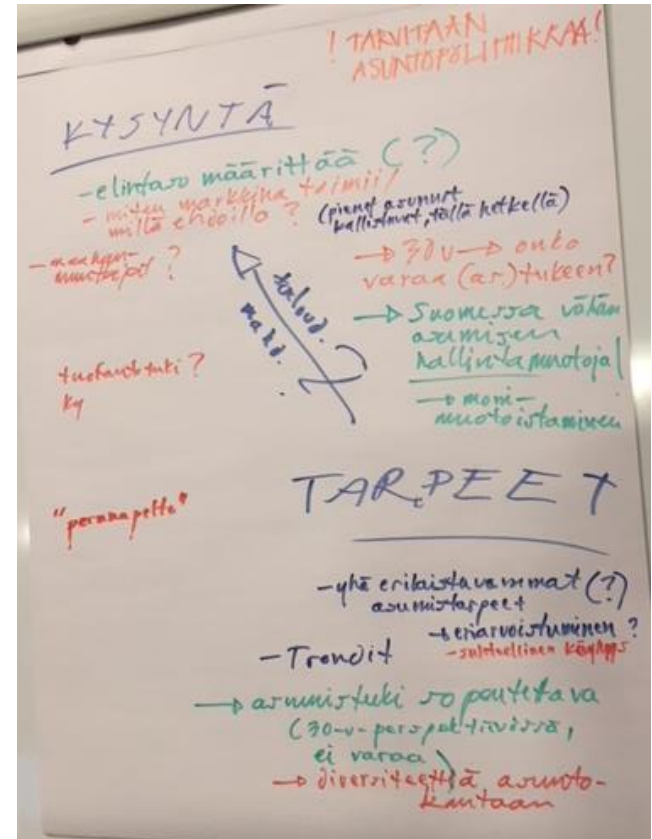 ! TARVITAAN
ASUNTOPOLITIIKKAA!
KYSYNTÄ
- elintaso määrittää (?)
- miten markkina toimii/
millä ehdoilla?
(pienet asunnot
kallistuvat, tällä hetkellä)
- maahan-
muuttajat?
→ 30 v → onko
varaa (as.) tukeen?
taloud.
mahd.
→ Suomessa vähän
asumisen
hallintamuotoja!
→ moni-
muotoistaminen
tuotantotuki?
ky
"perunapelto"
TARPEET
- yhä erilaistuvammat (?)
asumistarpeet
→ eriarvoistuminen?
- Trendit
→ asumistuki sopeutettava
(30-v-perspektiivissä,
ei varaa)
→ diversiteettiä asunto-
kantaan